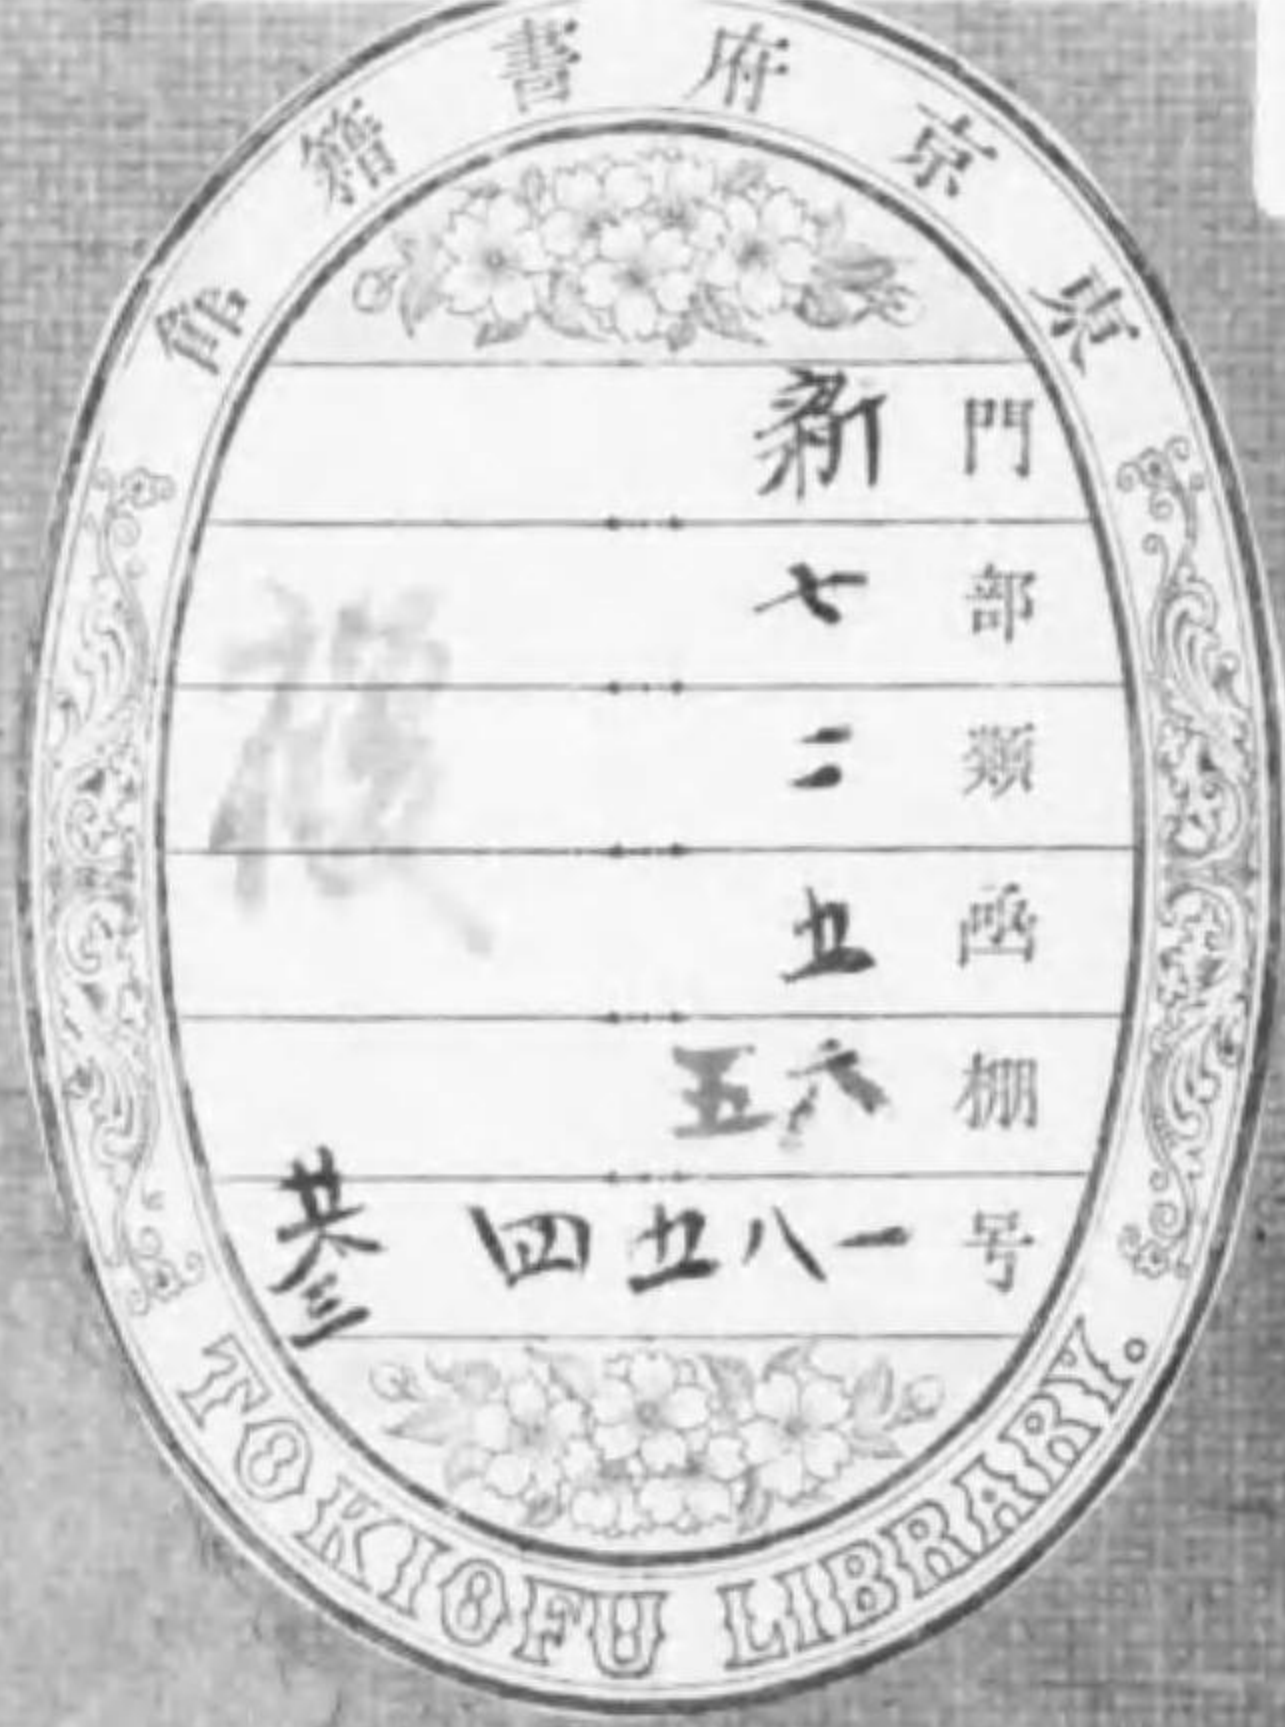 東京府書籍館
門 新
部 七
類 二
函 五
棚 六 五
号 一八五四
共三
TOKIOFU LIBRARY.